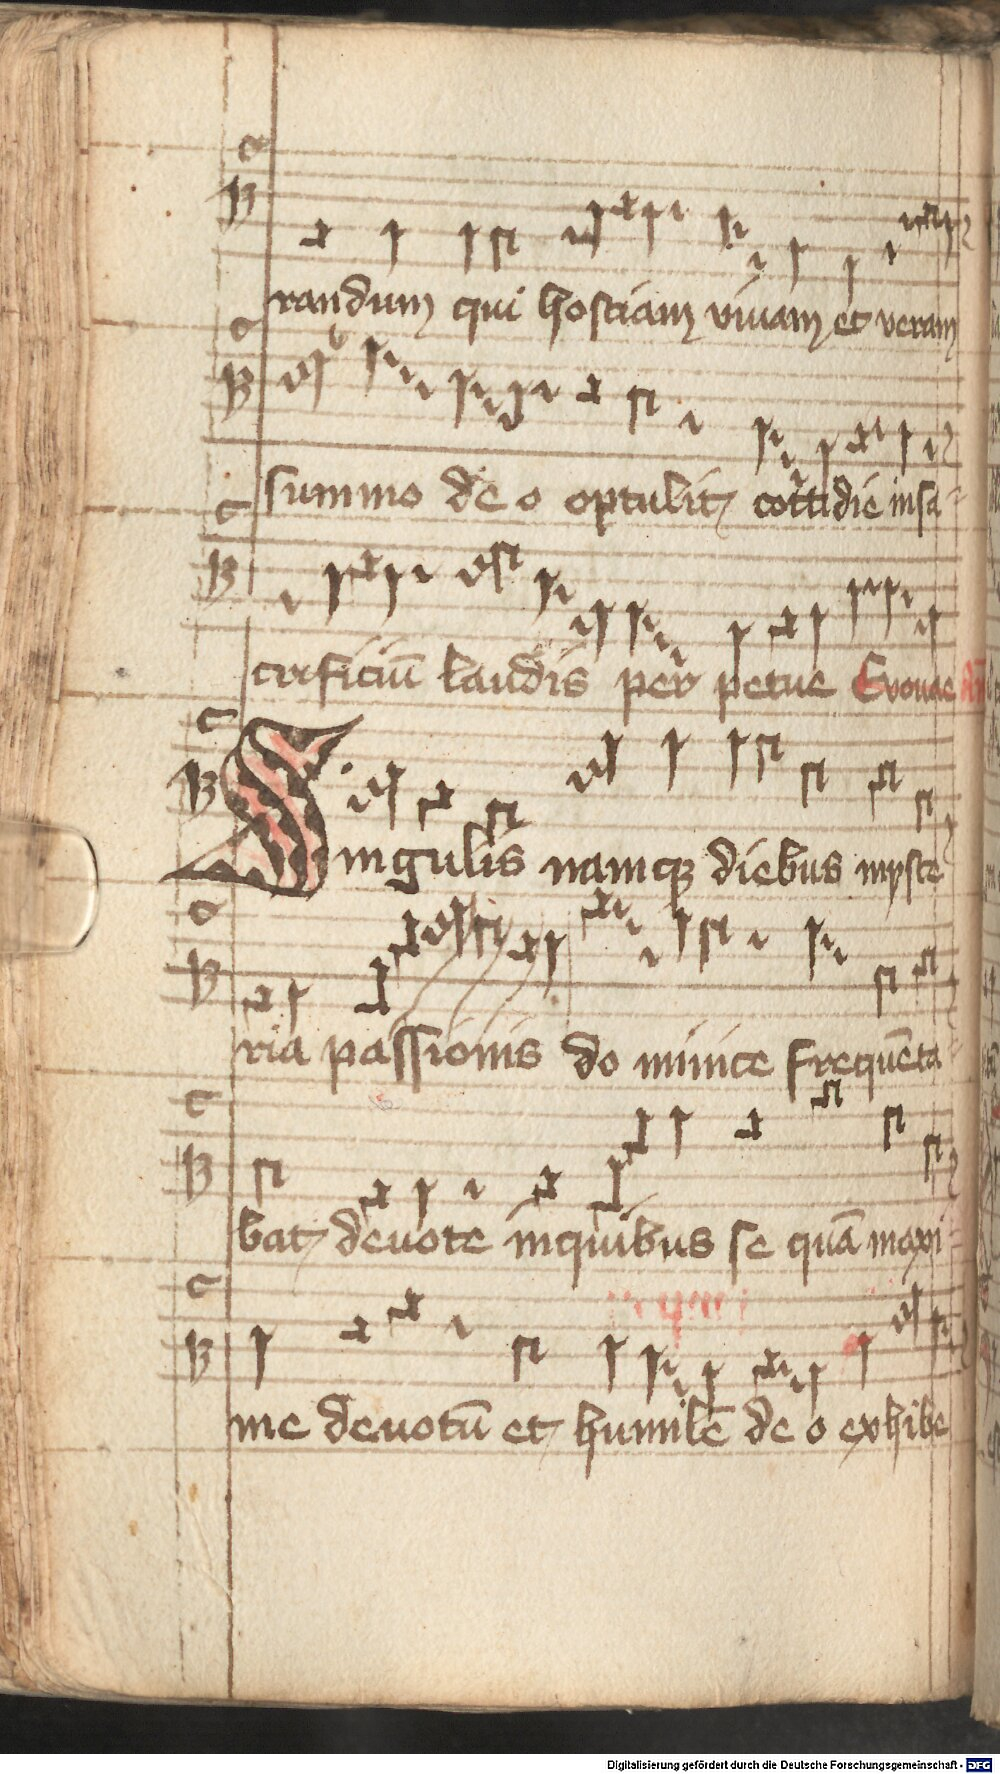 randum qui hostiam viuam et veram
summo de o optulit cottidie in sa
crificiū laudis per petue Evouae
Singulis namq diebus myste
ria passionis do minice frequēta
bat deuote in quibus se quā maxi
me deuotū et humilē de o exhibe
Digitalisierung gefördert durch die Deutsche Forschungsgemeinschaft - DFG